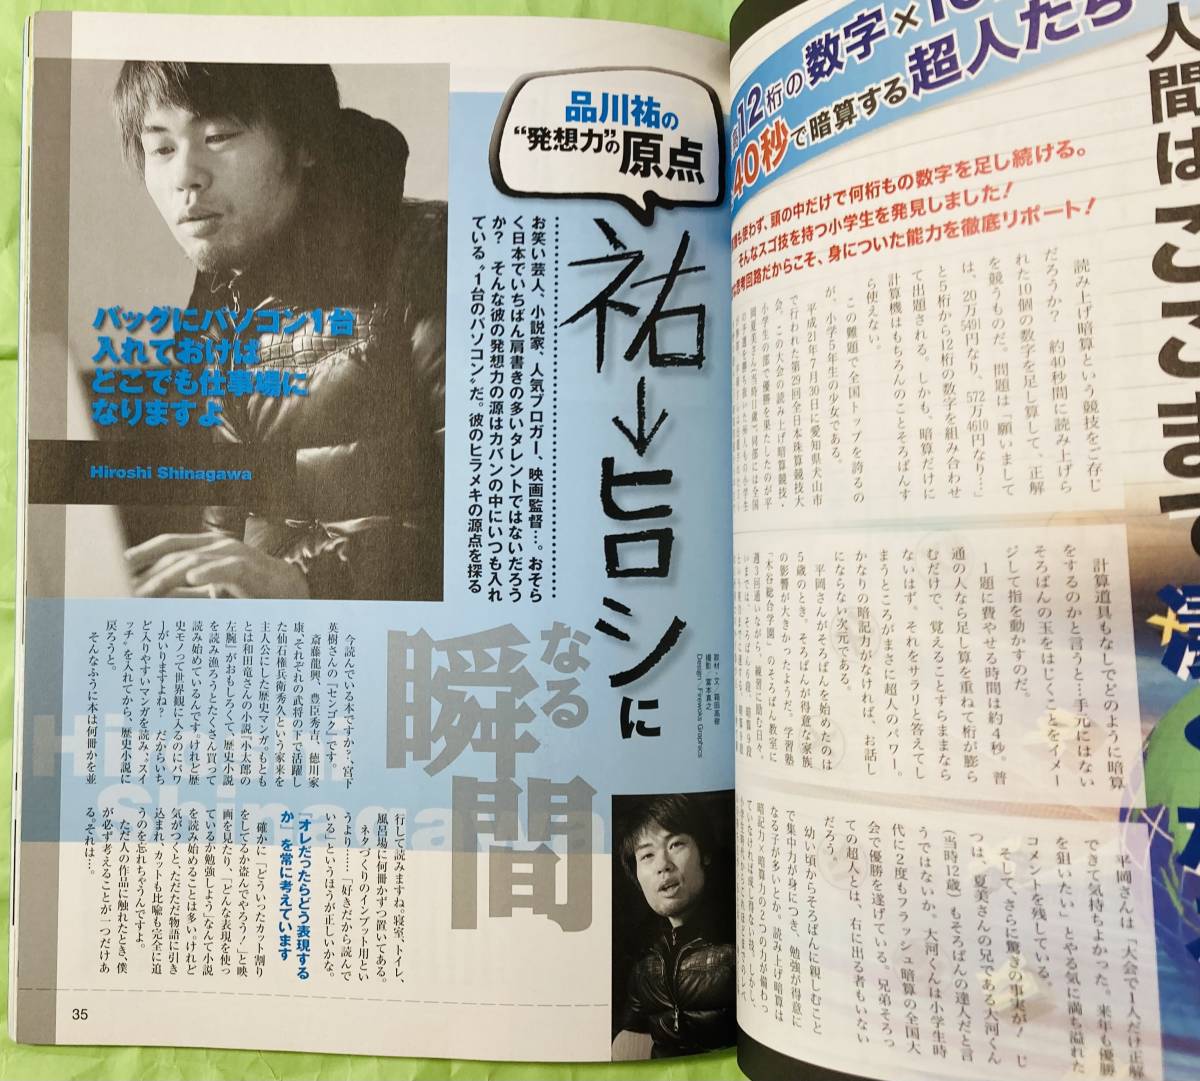 品川祐の
“発想力”の原点
祐→ヒロシに
なる
瞬間
お笑い芸人、小説家、人気ブロガー、映画監督…。おそら
く日本でいちばん肩書きの多いタレントではないだろう
か？　そんな彼の発想力の源はカバンの中にいつも入れ
ている〝1台のパソコン〟だ。彼のヒラメキの源点を探る
バッグにパソコン1台
入れておけば
どこでも仕事場に
なりますよ
Hiroshi Shinagawa
撮影／富本真之
Design／Fireworks Graphics
今読んでいる本ですか、宮下
英樹さんの『センゴク』です。
斎藤龍興、豊臣秀吉、徳川家
康、それぞれの武将の下で活躍し
た仙石権兵衛秀久という家来を
主人公にした歴史マンガ。もとも
とは和田竜さんの小説『小太郎の
左腕』がおもしろくて、歴史小説
を読み漁ろうとたくさん買って
読み始めているんですけれど歴
史モノって世界観に入るのにパワ
ーがいりますよね？　だからいち
ど入りやすいマンガを読み〝スイ
ッチ〟を入れてから、歴史小説に
戻ろうと。
そんなふうに本は何冊かを並
行して読みますね。寝室、トイレ、
風呂場に何冊かずつ置いてある。
ネタづくりのインプット用とい
うより……「好きだから読んで
いる」というほうが正しいかな。
「オレだったらどう表現する
か」を常に考えています
確かに「どういったカット割り
をしてるか盗んでやろう？」と映
画を見たり、「どんな表現を使っ
ているか勉強しよう」なんて小説
を読み始めることは多い。けれど
気がつくと、ただただ物語に引き
込まれ、カットも比喩も完全に追
うのを忘れちゃうんですよ。
ただ人の作品に触れたとき、僕
が必ず考えることが一つだけあ
る。それは…。
35
Hiroshi
Shinagawa
人間はここまで
12桁の数字×10
40秒で暗算する超人たち
使わず、頭の中だけで何桁もの数字を足し続ける。
そんなスゴ技を持つ小学生を発見しました！
思考回路だからこそ、身についた能力を徹底リポート！
読み上げ暗算という競技をご存じ
だろうか？　約40秒間に読み上げら
れた10個の数字を足し算して、正解
を競うものだ。問題は「願いまして
は、20万5491円なり、572万4610円なり…」
と5桁から12桁の数字を組み合わせ
て出題される。しかも、暗算だけに
計算機はもちろんのことそろばんす
ら使えない。
この難題で全国トップを誇るの
が、小学5年生の少女である。
平成21年7月30日に愛知県犬山市
で行われた第29回全日本珠算競技大
会。この大会の読み上げ暗算競技・
小学生の部で優勝を果たしたのが平
岡夏美さん（当時11歳）。同部には全国
計算道具もなしでどのように暗算
をするのかと言うと…手元にはない
そろばんの玉をはじくことをイメー
ジして指を動かすのだ。
1題に費やせる時間は約4秒。普
通の人なら足し算を重ねて桁が膨ら
むだけで、覚えることすらままなら
ないはず。それをサラリと答えてし
まうところがまさに超人のパワー。
かなりの暗記力がなければ、お話し
にならない次元である。
平岡さんがそろばんを始めたのは
5歳のとき。そろばんが得意な家族
の影響が大きかったようだ。学習塾
「木谷総合学園」のそろばん教室に
週3回通いながら、練習に励む日々。
いまでは、そろばん6段、暗算9段
平岡さんは「大会で1人だけ正解
できて気持ちよかった。来年も優勝
を狙いたい」とやる気に満ち溢れた
コメントを残している。
そして、さらに驚きの事実が！　じ
つは、夏美さんの兄である大河くん
（当時12歳）もそろばんの達人だと言
うではないか。大河くんは小学生時
代に2度もフラッシュ暗算の全国大
会で優勝を遂げている。兄弟そろっ
ての超人とは、右に出る者もいない
だろう。
幼い頃からそろばんに親しむこと
で集中力が身につき、勉強が得意に
なる子が多いとか。読み上げ暗算は
暗記力×暗算力の2つの力が備わっ
ていなければ成し得ない技。しかし、